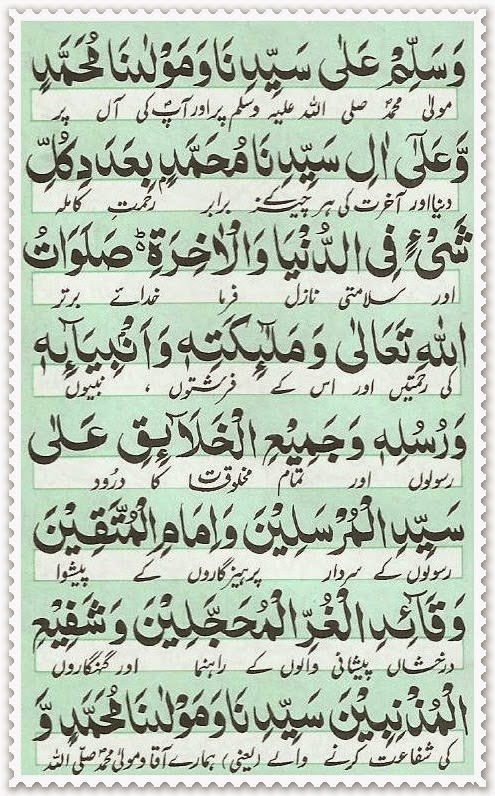 وَسَلِّمْ عَلٰى سَيِّدِنَا وَمَوْلٰىنَا مُحَمَّدٍ
مولیٰ محمدؐ صلی اللہ علیہ وسلم پر اور آپؐ کی آل پر
وَّعَلٰٓى اٰلِ سَيِّدِنَا مُحَمَّدٍ بِعَدَدِ كُلِّ
دنیا اور آخرت کی ہر چیز کے برابر رحمت کاملہ
شَىْءٍ فِى الدُّنْيَا وَالْاٰخِرَةِ ؕ صَلَوَاتُ
اور سلامتی نازل فرما خدائے برتر
اللهِ تَعَالٰى وَمَلٰٓئِكَتِهٖ وَاَنْۢبِيَآئِهٖ
کی رحمتیں اور اس کے فرشتوں ، نبیوں
وَرُسُلِهٖ وَجَمِيْعِ الْخَلَآئِقِ عَلٰى
رسولوں اور تمام مخلوقات کا درود
سَيِّدِ الْمُرْسَلِيْنَ وَاِمَامِ الْمُتَّقِيْنَ
رسولوں کے سردار پرہیزگاروں کے پیشوا
وَقَآئِدِ الْغُرِّ الْمُحَجَّلِيْنَ وَشَفِيْعِ
درخشاں پیشانی والوں کے راہنما اور گنہگاروں
الْمُذْنِبِيْنَ سَيِّدِنَا وَمَوْلٰىنَا مُحَمَّدٍ وَّ
کی شفاعت کرنے والے (یعنی) ہمارے آقا و مولیٰ محمد صلّی اللہ